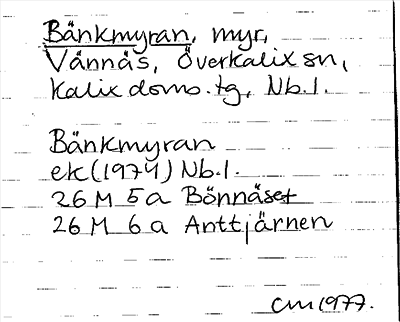 Bänkmyran, myr,
Vännäs, Överkalix sn,
Kalix doms.tg, Nb.l.
Bänkmyran
ek (1974) Nb.l.
26 M 5 a Bönnäset
26 M 6 a Anttjärnen
CM 1977.